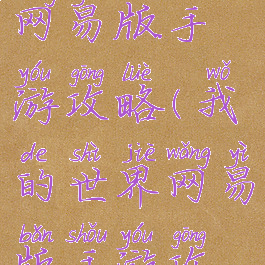 网易版手
yóu gōng lüè wǒ
游攻略(我
de shì jiè wǎng yì
的世界网易
bǎn shǒu yóu gōng
版手游攻